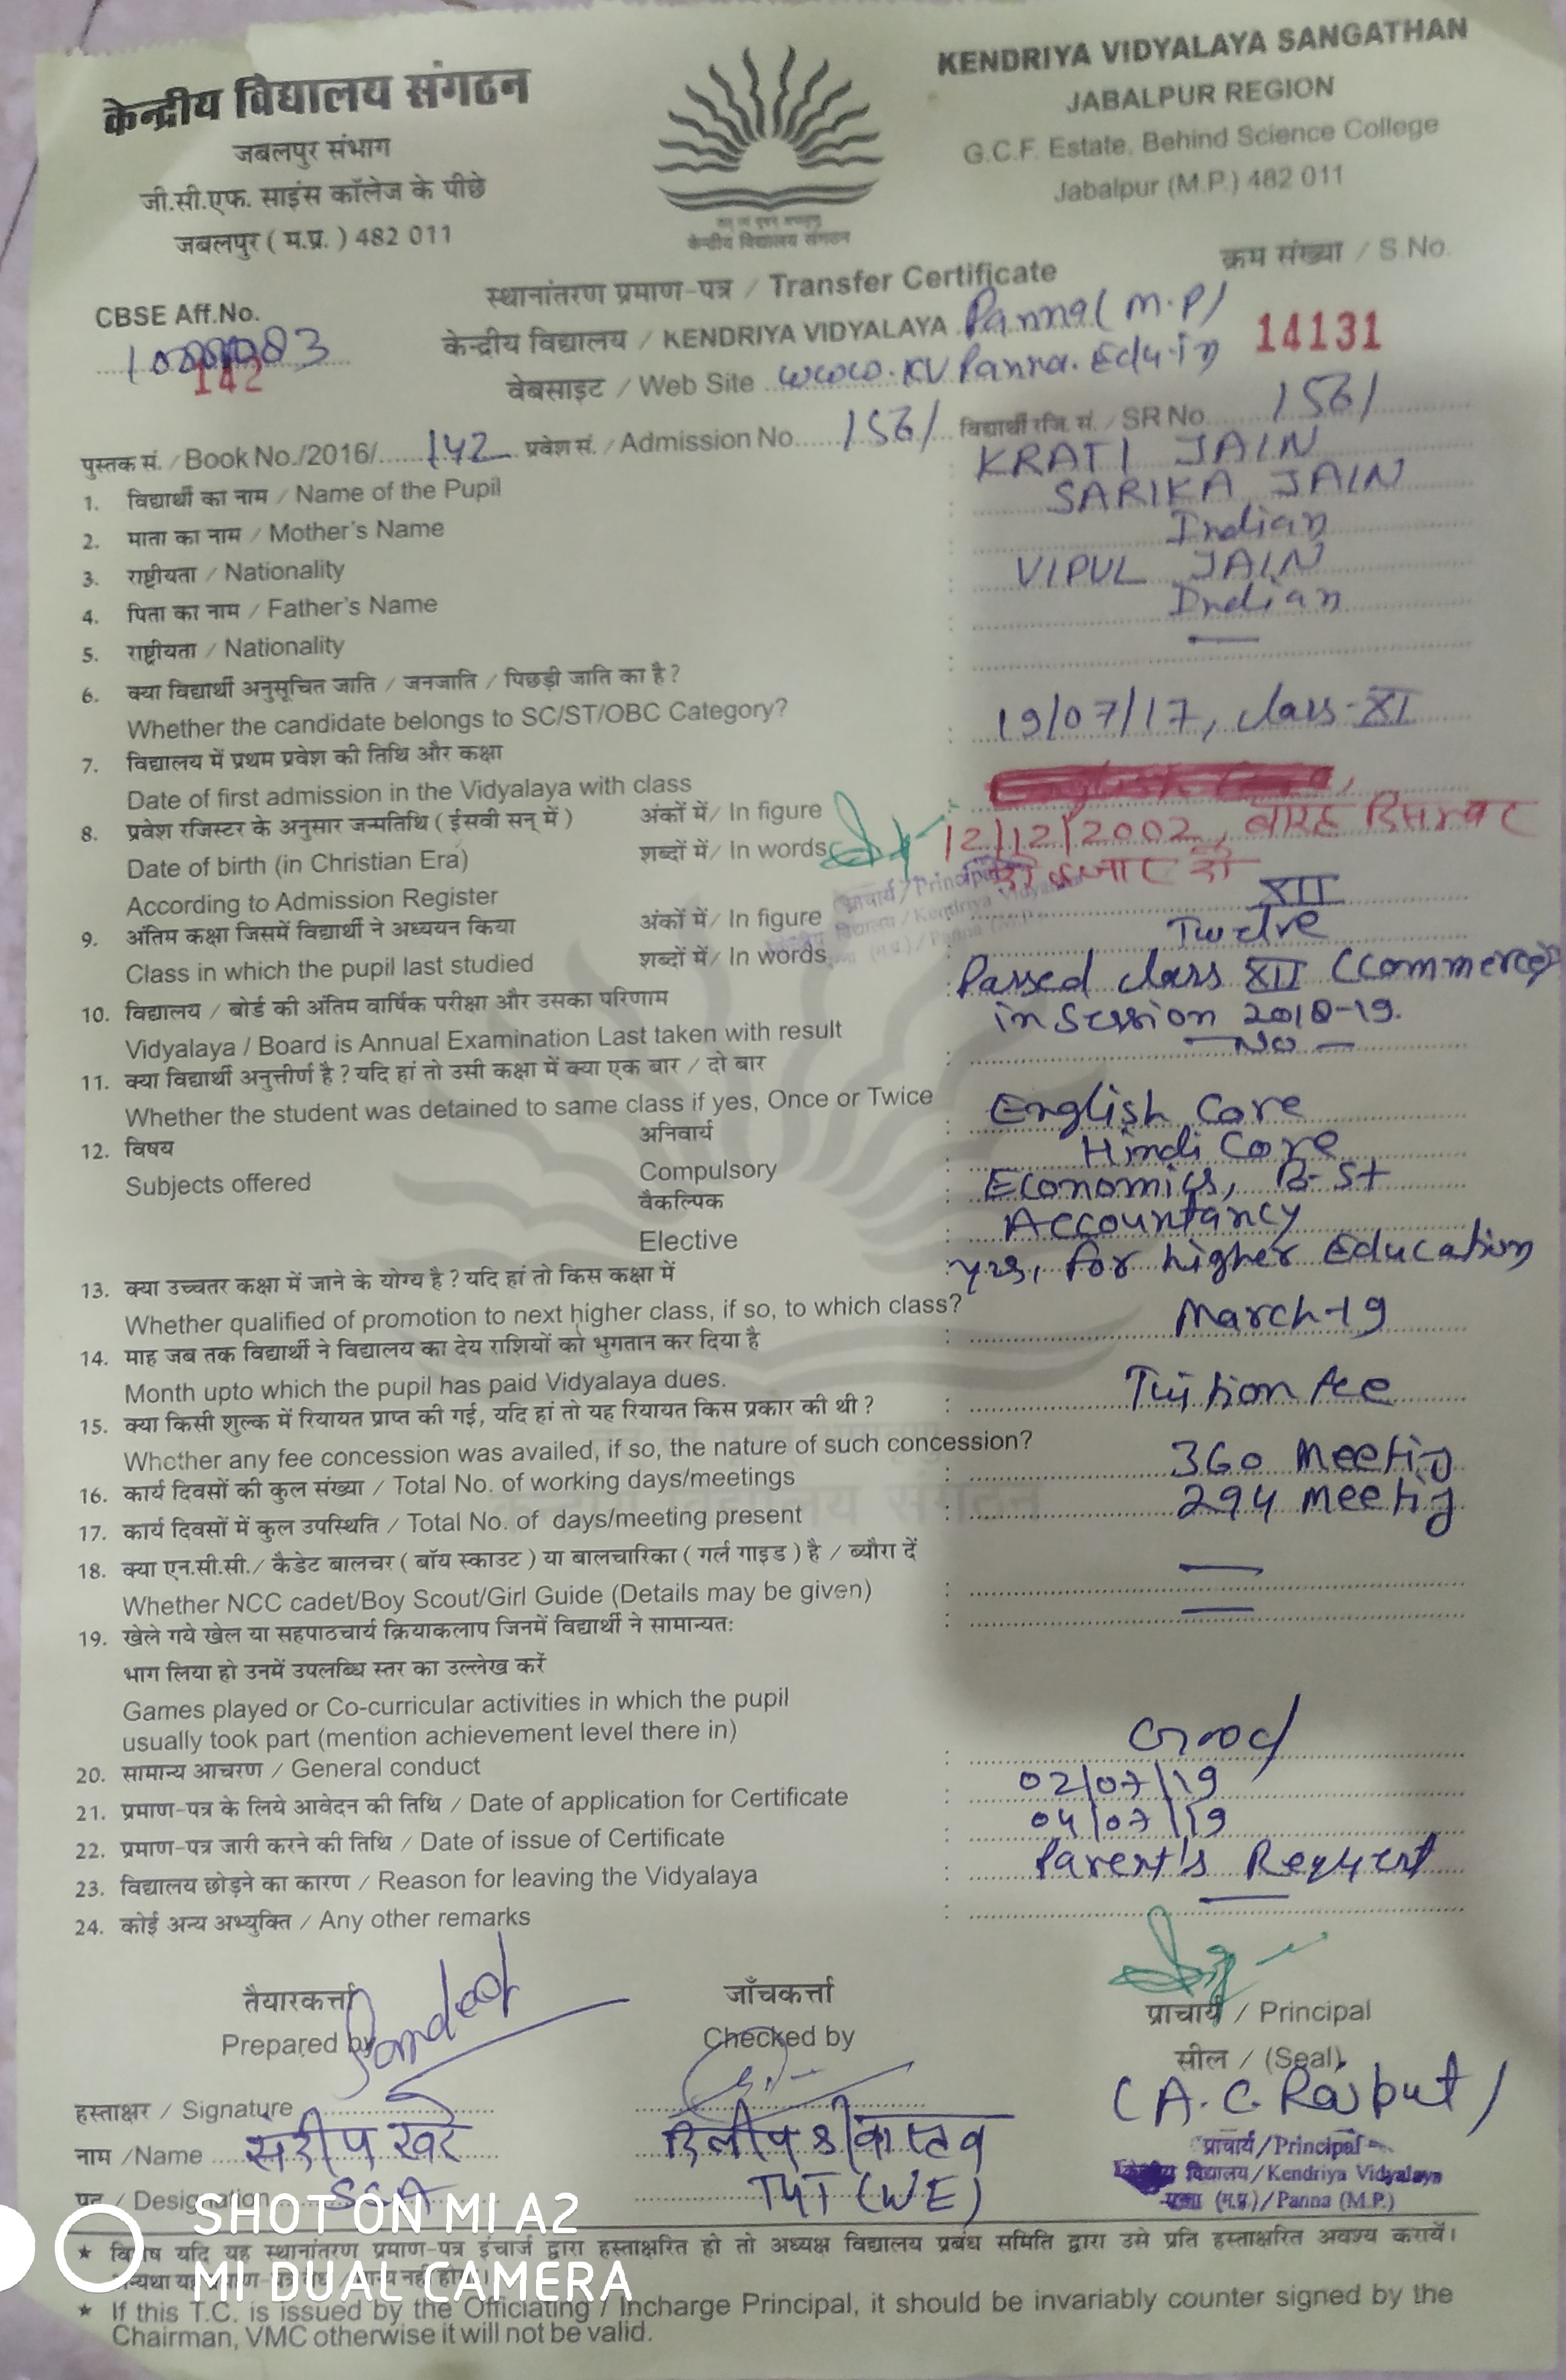 केन्द्रीय विद्यालय संगठन
जबलपुर संभाग
जी.सी.एफ. साइंस कॉलेज के पीछे
जबलपुर ( म.प्र. ) 482 011
केन्द्रीय विद्यालय संगठन
KENDRIYA VIDYALAYA SANGATHAN
JABALPUR REGION
G.C.F. Estate, Behind Science College
Jabalpur (M.P.) 482 011
क्रम संख्या / S.No.
14131
CBSE Aff.No.
142
स्थानांतरण प्रमाण-पत्र / Transfer Certificate
केन्द्रीय विद्यालय / KENDRIYA VIDYALAYA Panna (M.P)
वेबसाइट / Web Site www.KVPanna.Edu.in
पुस्तक सं. / Book No./2016/ 142 प्रवेश सं. / Admission No. 1561 विद्यार्थी रजि. सं. / SR No. 1561
1. विद्यार्थी का नाम / Name of the Pupil : KRATI JAIN
2. माता का नाम / Mother's Name : SARIKA JAIN
3. राष्ट्रीयता / Nationality : Indian
4. पिता का नाम / Father's Name : VIPUL JAIN
5. राष्ट्रीयता / Nationality : Indian
6. क्या विद्यार्थी अनुसूचित जाति / जनजाति / पिछड़ी जाति का है ? : —
Whether the candidate belongs to SC/ST/OBC Category?
7. विद्यालय में प्रथम प्रवेश की तिथि और कक्षा : 19/07/17, class-XI
Date of first admission in the Vidyalaya with class
8. प्रवेश रजिस्टर के अनुसार जन्मतिथि ( ईसवी सन् में ) अंकों में / In figure
Date of birth (in Christian Era) शब्दों में / In words 12/12/2002, बारह दिसम्बर
दो हजार दो
According to Admission Register
प्राचार्य / Principal
केन्द्रीय विद्यालय / Kendriya Vidyalaya
9. अंतिम कक्षा जिसमें विद्यार्थी ने अध्ययन किया अंकों में / In figure XII
Class in which the pupil last studied शब्दों में / In words Twelve
10. विद्यालय / बोर्ड की अंतिम वार्षिक परीक्षा और उसका परिणाम : Passed class XII (Commerce)
Vidyalaya / Board is Annual Examination Last taken with result in Session 2018-19.
11. क्या विद्यार्थी अनुत्तीर्ण है ? यदि हां तो उसी कक्षा में क्या एक बार / दो बार : — No —
Whether the student was detained to same class if yes, Once or Twice
12. विषय अनिवार्य : English Core
Subjects offered Compulsory : Hindi Core
वैकल्पिक : Economics, B-St
Elective : Accountancy
13. क्या उच्चतर कक्षा में जाने के योग्य है ? यदि हां तो किस कक्षा में : Yes, for higher Education
Whether qualified of promotion to next higher class, if so, to which class?
14. माह जब तक विद्यार्थी ने विद्यालय का देय राशियों को भुगतान कर दिया है : March-19
Month upto which the pupil has paid Vidyalaya dues.
15. क्या किसी शुल्क में रियायत प्राप्त की गई, यदि हां तो यह रियायत किस प्रकार की थी ? : Tuition fee
Whether any fee concession was availed, if so, the nature of such concession?
16. कार्य दिवसों की कुल संख्या / Total No. of working days/meetings : 360 Meetig
17. कार्य दिवसों में कुल उपस्थिति / Total No. of days/meeting present : 294 Meetig
18. क्या एन.सी.सी./ कैडेट बालचर ( बॉय स्काउट ) या बालचारिका ( गर्ल गाइड ) है / ब्यौरा दें : —
Whether NCC cadet/Boy Scout/Girl Guide (Details may be given)
19. खेले गये खेल या सहपाठचार्य क्रियाकलाप जिनमें विद्यार्थी ने सामान्यतः : —
भाग लिया हो उनमें उपलब्धि स्तर का उल्लेख करें
Games played or Co-curricular activities in which the pupil
usually took part (mention achievement level there in)
20. सामान्य आचरण / General conduct : Good
21. प्रमाण-पत्र के लिये आवेदन की तिथि / Date of application for Certificate : 02/07/19
22. प्रमाण-पत्र जारी करने की तिथि / Date of issue of Certificate : 04/07/19
23. विद्यालय छोड़ने का कारण / Reason for leaving the Vidyalaya : Parent's Request
24. कोई अन्य अभ्युक्ति / Any other remarks : —
तैयारकर्त्ता जाँचकर्त्ता प्राचार्य / Principal
Prepared by Checked by सील / (Seal)
हस्ताक्षर / Signature Sandeep (A.C. Rajput)
नाम /Name संदीप खरे दिलीप श्रीवास्तव प्राचार्य/Principal
केन्द्रीय विद्यालय/Kendriya Vidyalaya
पद / Designation SSA TGT (WE) पन्ना (म.प्र.)/Panna (M.P.)
★ विशेष यदि यह स्थानांतरण प्रमाण-पत्र इंचार्ज द्वारा हस्ताक्षरित हो तो अध्यक्ष विद्यालय प्रबंध समिति द्वारा उसे प्रति हस्ताक्षरित अवश्य करायें।
अन्यथा यह प्रमाण-पत्र मान्य नहीं होगा।
★ If this T.C. is issued by the Officiating / Incharge Principal, it should be invariably counter signed by the
Chairman, VMC otherwise it will not be valid.
SHOT ON MI A2
MI DUAL CAMERA